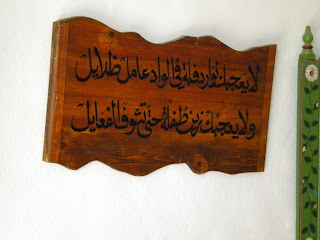 لا يعجبك نوار دفلة في الواد عامل ظلايل
ولا يعجبك زين طفلة حتى تشوف الفعايل